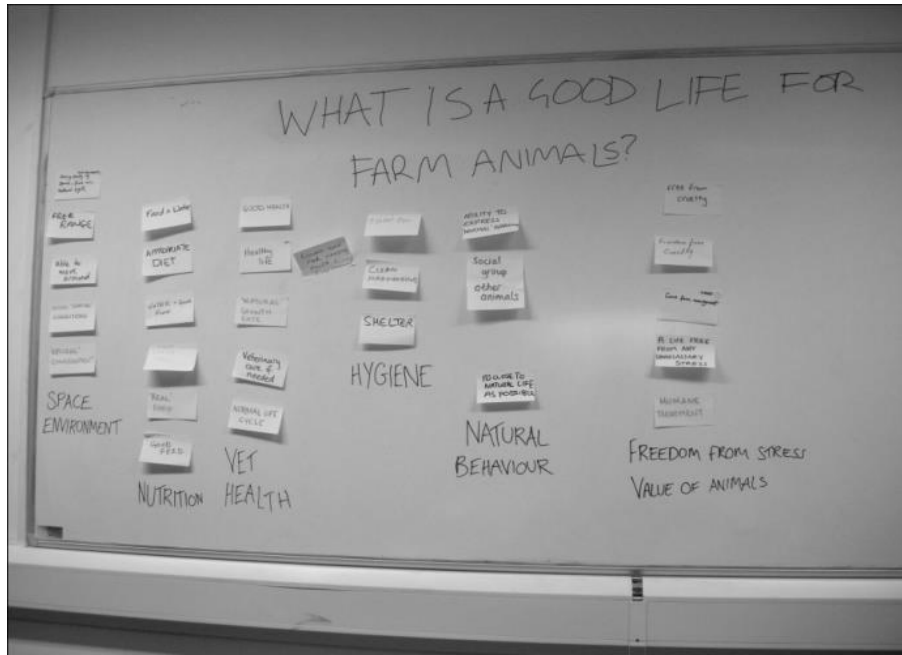 WHAT IS A GOOD LIFE FOR
FARM ANIMALS?
FREE
RANGE
able to
move
around
SPACE
ENVIRONMENT
Food & Water
APPROPRIATE
DIET
'REAL'
FOOD
GOOD
FEED
NUTRITION
GOOD HEALTH
Healthy
life
NATURAL
GROWTH
RATE
Veterinary
care if
needed
NORMAL LIFE
CYCLE
VET
HEALTH
CLEAN
SHELTER
HYGIENE
ABILITY TO
EXPRESS
Social
group
other
animals
AS CLOSE TO
NATURAL LIFE
AS POSSIBLE
NATURAL
BEHAVIOUR
free from
cruelty
cruelty
A LIFE FREE
FROM ANY
UNNECESSARY
STRESS
HUMANE
TREATMENT
FREEDOM FROM STRESS
VALUE OF ANIMALS